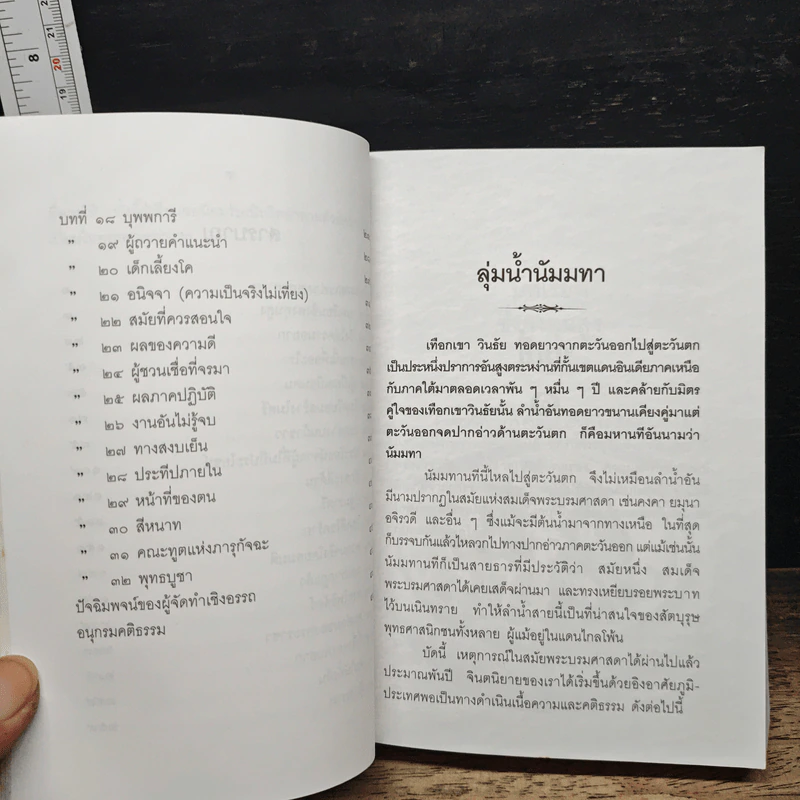 8
20
19
บทที่ ๑๘ บุพพการี
" ๑๙ ผู้ถวายคำแนะนำ
" ๒๐ เด็กเลี้ยงโค
" ๒๑ อนิจจา (ความเป็นจริงไม่เที่ยง)
" ๒๒ สมัยที่ควรสอนใจ
" ๒๓ ผลของความดี
" ๒๔ ผู้ชวนเชื่อที่จรมา
" ๒๕ ผลภาคปฏิบัติ
" ๒๖ งานอันไม่รู้จบ
" ๒๗ ทางสงบเย็น
" ๒๘ ประทีปภายใน
" ๒๙ หน้าที่ของตน
" ๓๐ สีหนาท
" ๓๑ คณะทูตแห่งภารุกัจฉะ
" ๓๒ พุทธบูชา
ปัจฉิมพจน์ของผู้จัดทำเชิงอรรถ
อนุกรมคติธรรม
ลุ่มน้ำนัมมทา
เทือกเขา วินธัย ทอดยาวจากตะวันออกไปสู่ตะวันตก
เป็นประหนึ่งปราการอันสูงตระหง่านที่กั้นเขตแดนอินเดียภาคเหนือ
กับภาคใต้มาตลอดเวลาพัน ๆ หมื่น ๆ ปี และคล้ายกับมิตร
คู่ใจของเทือกเขาวินธัยนั้น ลำน้ำอันทอดยาวขนานเคียงคู่มาแต่
ตะวันออกจดปากอ่าวด้านตะวันตก ก็คือมหานทีอันนามว่า
นัมมทา
นัมมทานทีนี้ไหลไปสู่ตะวันตก จึงไม่เหมือนลำน้ำอัน
มีนามปรากฏในสมัยแห่งสมเด็จพระบรมศาสดา เช่นคงคา ยมุนา
อจิรวดี และอื่น ๆ ซึ่งแม้จะมีต้นน้ำมาจากทางเหนือ ในที่สุด
ก็บรรจบกันแล้วไหลวกไปทางปากอ่าวภาคตะวันออก แต่แม้เช่นนั้น
นัมมทานทีก็เป็นสายธารที่มีประวัติว่า สมัยหนึ่ง สมเด็จ
พระบรมศาสดาได้เคยเสด็จผ่านมา และทรงเหยียบรอยพระบาท
ไว้บนเนินทราย ทำให้ลำน้ำสายนี้เป็นที่น่าสนใจของสัตบุรุษ
พุทธศาสนิกชนทั้งหลาย ผู้แม้อยู่ในแดนไกลโพ้น
บัดนี้ เหตุการณ์ในสมัยพระบรมศาสดาได้ผ่านไปแล้ว
ประมาณพันปี จินตนิยายของเราได้เริ่มขึ้นด้วยอิงอาศัยภูมิ-
ประเทศพอเป็นทางดำเนินเนื้อความและคติธรรม ดังต่อไปนี้